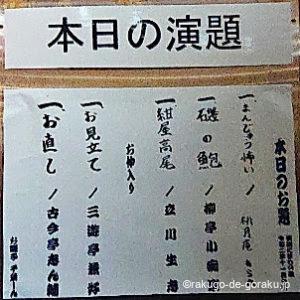 本日の演題
本日のお題
一、まんじゅう怖い / 桃月庵
一、磯の鮑 / 柳亭小痴楽
一、紺屋高尾 / 立川生志
お仲入り
一、お見立て / 三遊亭兼好
一、お直し / 古今亭志ん輔
©rakugo-de-goraku.jp